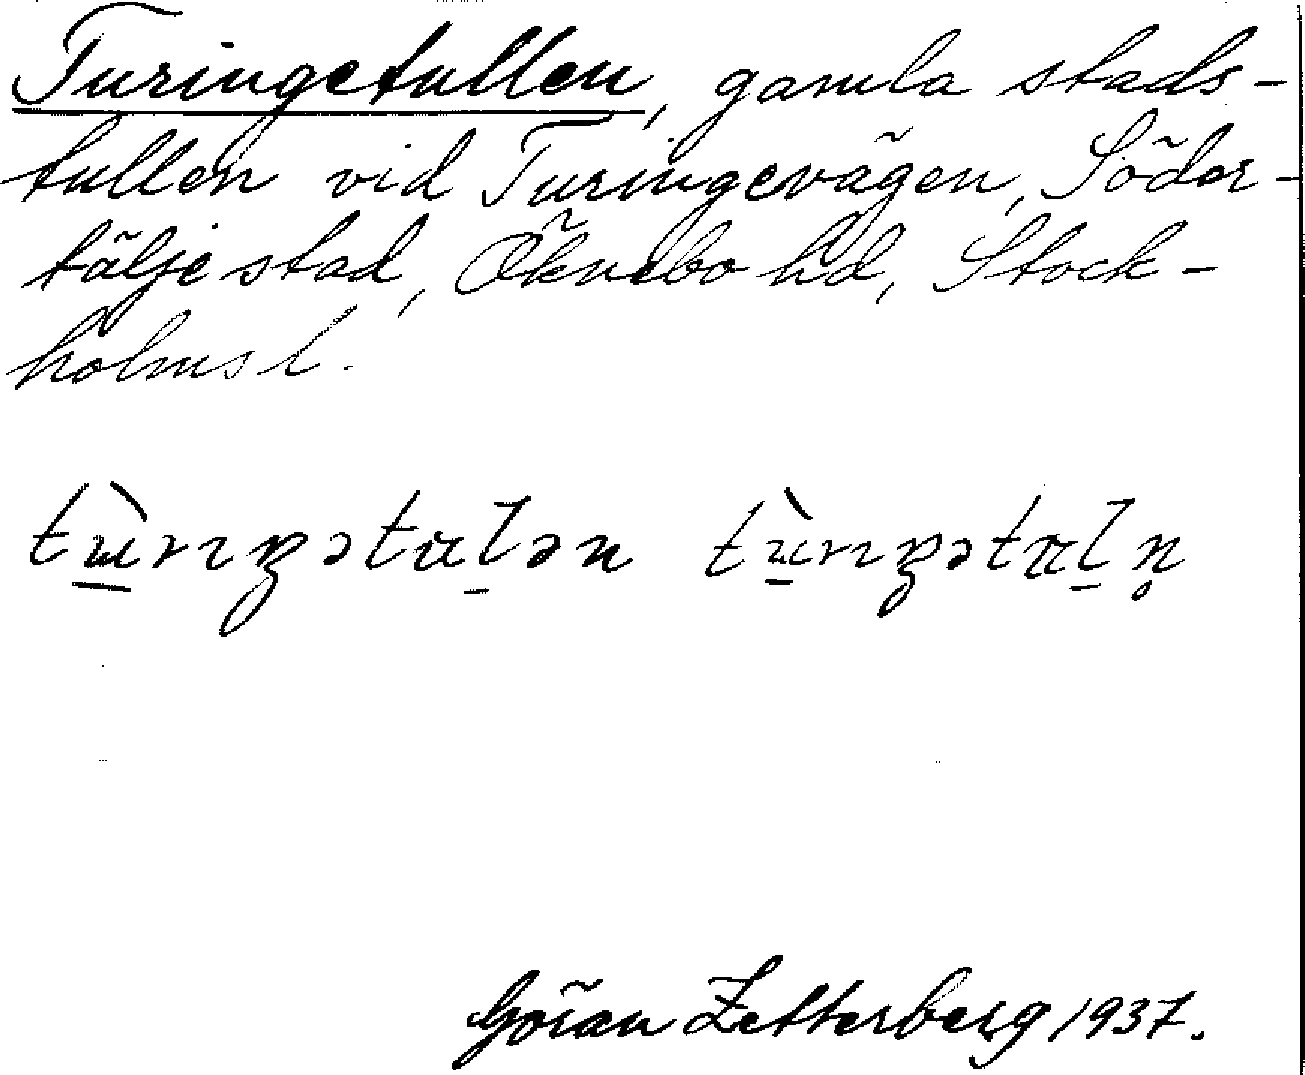 Turingetullen, gamla stads-
tullen vid Turingevägen, Söder-
tälje stad, Öknebo hd, Stock-
holms l.
Göran Zetterberg 1937.